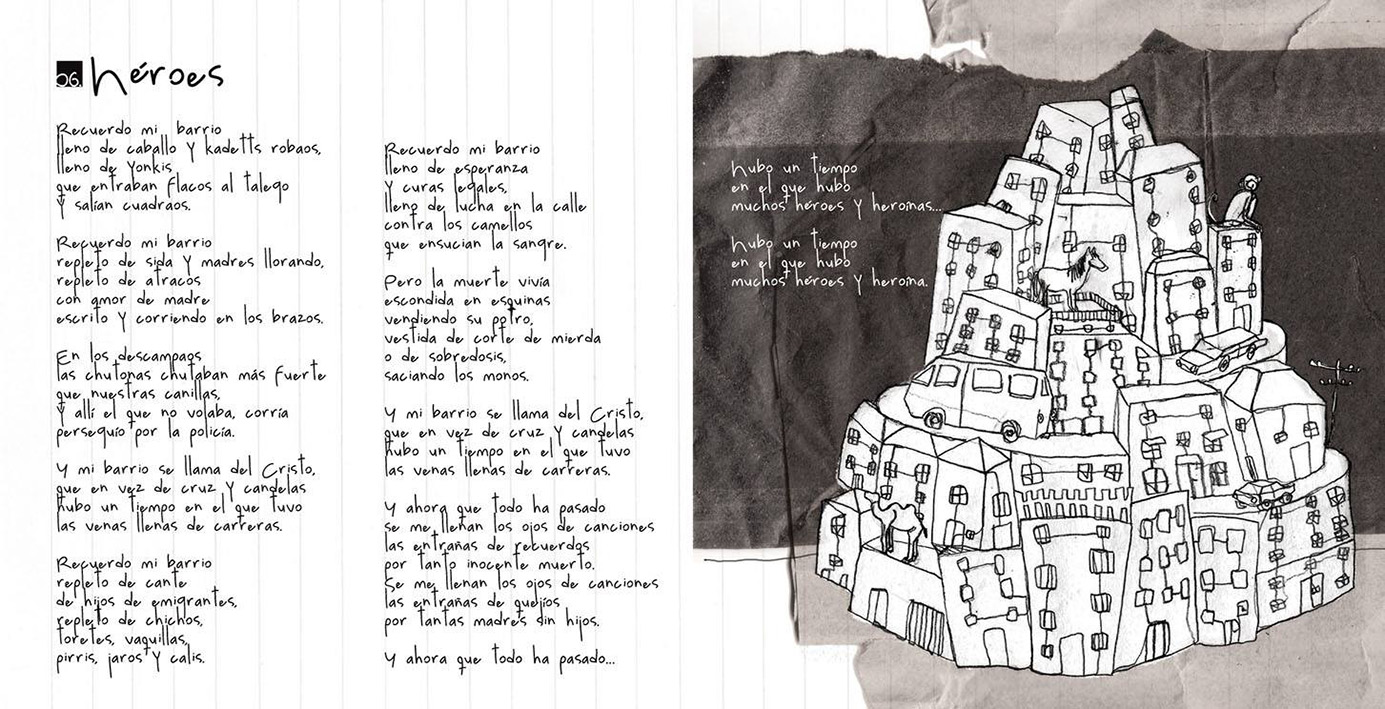 06. héroes
Recuerdo mi barrio
lleno de caballo y kadetts robaos,
lleno de yonkis
que entraban flacos al talego
y salían cuadraos.
Recuerdo mi barrio
repleto de sida y madres llorando,
repleto de atracos
con amor de madre
escrito y corriendo en los brazos.
En los descampaos
las chutonas chutaban más fuerte
que nuestras canillas,
y allí el que no volaba, corría
perseguío por la policía.
Y mi barrio se llama del Cristo,
que en vez de cruz y candelas
hubo un tiempo en el que tuvo
las venas llenas de carreras.
Recuerdo mi barrio
repleto de cante
de hijos de emigrantes,
repleto de chichos,
toretes, vaquillas,
pirris, jaros y calis.
Recuerdo mi barrio
lleno de esperanza
y curas legales,
lleno de lucha en la calle
contra los camellos
que ensucian la sangre.
Pero la muerte vivía
escondida en esquinas
vendiendo su potro,
vestida de corte de mierda
o de sobredosis,
saciando los monos.
Y mi barrio se llama del Cristo,
que en vez de cruz y candelas
hubo un tiempo en el que tuvo
las venas llenas de carreras.
Y ahora que todo ha pasado
se me llenan los ojos de canciones
las entrañas de recuerdos
por tanto inocente muerto.
Se me llenan los ojos de canciones
las entrañas de quejíos
por tantas madres sin hijos.
Y ahora que todo ha pasado...
hubo un tiempo
en el que hubo
muchos héroes y heroínas...
hubo un tiempo
en el que hubo
muchos héroes y heroína.